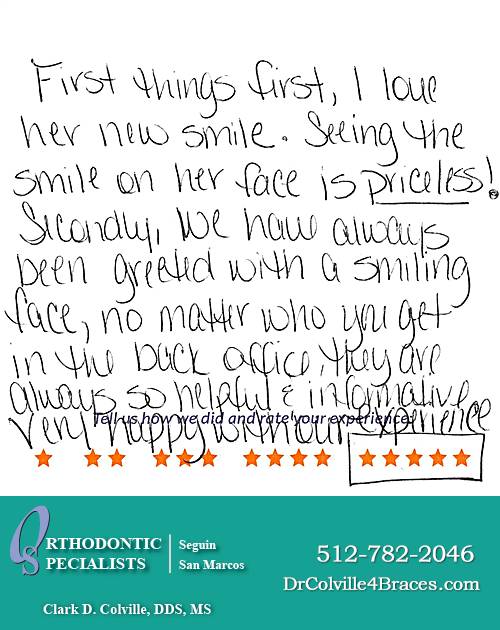 First things first, I love
her new smile. Seeing the
smile on her face is priceless!
Secondly, we have always
been greeted with a smiling
face, no matter who you get
in the back office, they are
always so helpful & informative.
Very happy with our experience
Tell us how we did and rate your experience!
ORTHODONTIC SPECIALISTS
Seguin
San Marcos
512-782-2046
DrColville4Braces.com
Clark D. Colville, DDS, MS